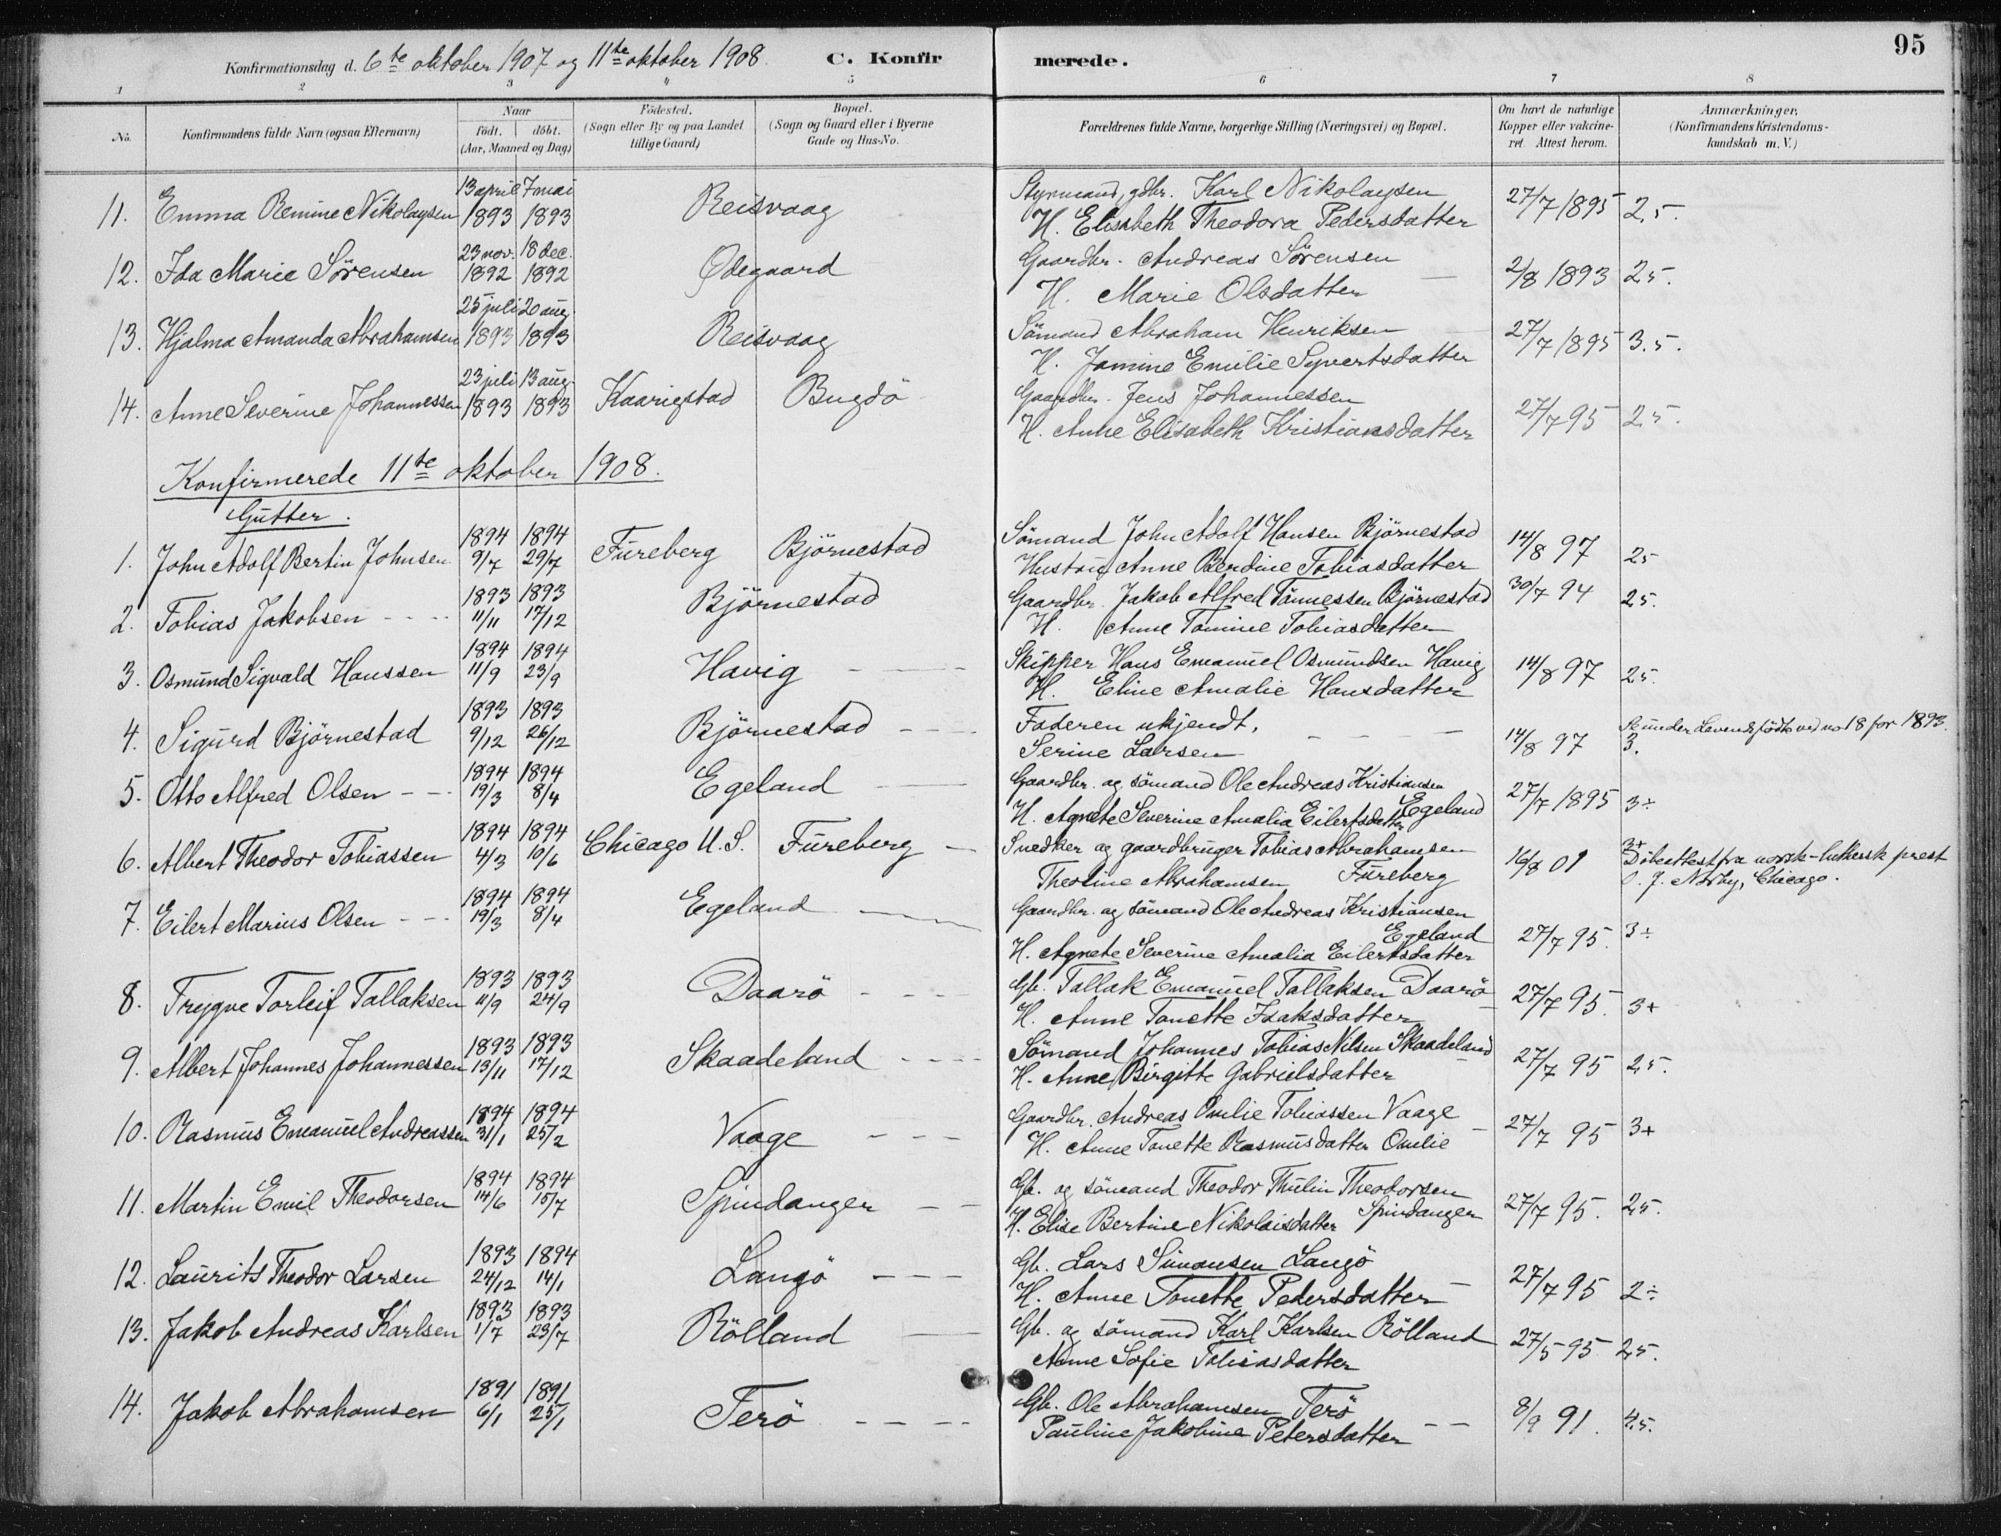 95
Konfirmationsdag d. 6te oktober 1907 og 11te oktober 1908. C. Konfirmerede.
1 2 3 " 5 6 7 8
No. Konfirmandens fulde Navn (ogsaa Efternavn) Naar født. døbt. (Aar, Maaned og Dag) Fødested. (Sogn eller By og paa Landet tillige Gaard) Bopæl. (Sogn og Gaard eller i Byerne Gade og Hus-No. Forældrenes fulde Navne, borgerlige Stilling (Næringsvei) og Bopæl. Om havt de naturlige Kopper eller vakcineret. Attest herom. Anmærkninger. (Konfirmandens Kristendomskundskab m. V.)
13 april 7 mai Styrmand, gdbr. Karl Nikolaysen
11. Emma Remine Nikolaysen 1893 1893 Reisvaag H. Elisabeth Theodora Pedersdatter 27/7 1895 2,5.
23 nov. 18 dec. Gaardbr. Andreas Sörensen
12. Ida Marie Sörensen 1892 1892 Ødegaard H. Marie Olsdatter 2/8 1893 2,5.
25 juli 20 aug. Sömand Abraham Henriksen
13. Hjalma Amanda Abrahamsen 1893 1893 Reisvaag H. Jamine Emilie Syvertsdatter 27/7 1895 3.5.
23 juli 13 aug. Gaardbr. Jens Johannessen
14. Anne Severine Johannessen 1893 1893 Kaarigstad Bugdö H. Anne Elisabeth Kristiansdatter 27/7 95 2,5.
Konfirmerede 11te oktober 1908.
Gutter.
1894 1894 Sömand John Adolf Hansen Björnestad
1. John Adolf Bertin Johnsen 9/7 29/7 Fureberg Björnestad Hustru Anne Berdine Tobiasdatter 14/8 97 2,5
1893 1893 Gaardbr. Jakob Alfred Tönnessen Björnestad
2. Tobias Jakobsen 11/11 17/12 Björnestad H. Anne Tomine Tobiasdatter 30/7 94 2,5.
1894 1894 Skipper Hans Emanuel Osmundsen Havig
3. Osmund Sigvald Hanssen 11/9 23/9 Havig H. Eline Amalie Hansdatter 14/8 97 2,5.
1893 1893 Faderen ukjendt, under Levendefödte ved no 18 for 1893.
4. Sigurd Björnestad 9/12 26/12 Björnestad Serine Larsen 14/8 97 3.
1894 1894 Gaardbr. og sömand Ole Andreas Kristiansen Egeland
5. Otto Alfred Olsen 19/3 8/4 Egeland H. Agnete Severine Amalia Eilertsdatter 27/7 1895 3÷
1894 1894 Snedker og gaardbruger Tobias Abrahamsen Fureberg 3+
6. Albert Theodor Tobiassen 4/3 10/6 Chicago U.S. Fureberg Theoline Abrahamsen 16/8 01 Döbeattest fra norsk-luthersk prest
Chicago.
1894 1894 Gaardbr. og sömand Ole Andreas Kristiansen Egeland
7. Eilert Marius Olsen 19/3 8/4 Egeland H. Agnete Severine Amalia Eilertsdatter 27/7 95. 3÷
1893 1893 Gb. Tallak Emanuel Tallaksen Daarö
8. Trygve Torleif Tallaksen 11/9 24/9 Daarö H. Anne Tonette Isaksdatter 27/7 95. 3+
1893 1893 Sömand Johannes Tobias Nilsen Skaadeland
9. Albert Johannes Johannessen 13/11 17/12 Skaadeland H. Anne Birgitte Gabrielsdatter 27/7 95 2,5.
1894 1894 Gaardbr. Andreas Omlie Tobiassen Vaage
10. Rasmus Emanuel Andreassen 31/1 25/2 Vaage H. Anne Tonette Rasmusdatter Omlie 27/7 95 3+
1894 1894 Gb. og sömand Theodor Thulin Theodorsen Spindanger
11. Martin Emil Theodorsen 14/6 15/7 Spindanger H. Elise Bertine Nikolaisdatter 27/7 95. 2,5.
1893 1894 Gb. Lars Simonsen Langö
12. Laurits Theodor Larsen 24/12 14/1 Langö H. Anne Tonette Pedersdatter 27/7 95 2÷
1893 1893 Gb. og sömand Karl Karlsen Rölland
13. Jakob Andreas Karlsen 1/7 23/7 Rölland Anne Sofie Tobiasdatter 27/5 95 2,5.
1891 1891 Gb. Ole Abrahamsen Terö
14. Jakob Abrahamsen 6/1 25/1 Terö Pauline Jakobine Petersdatter 8/9 91. 4,5.